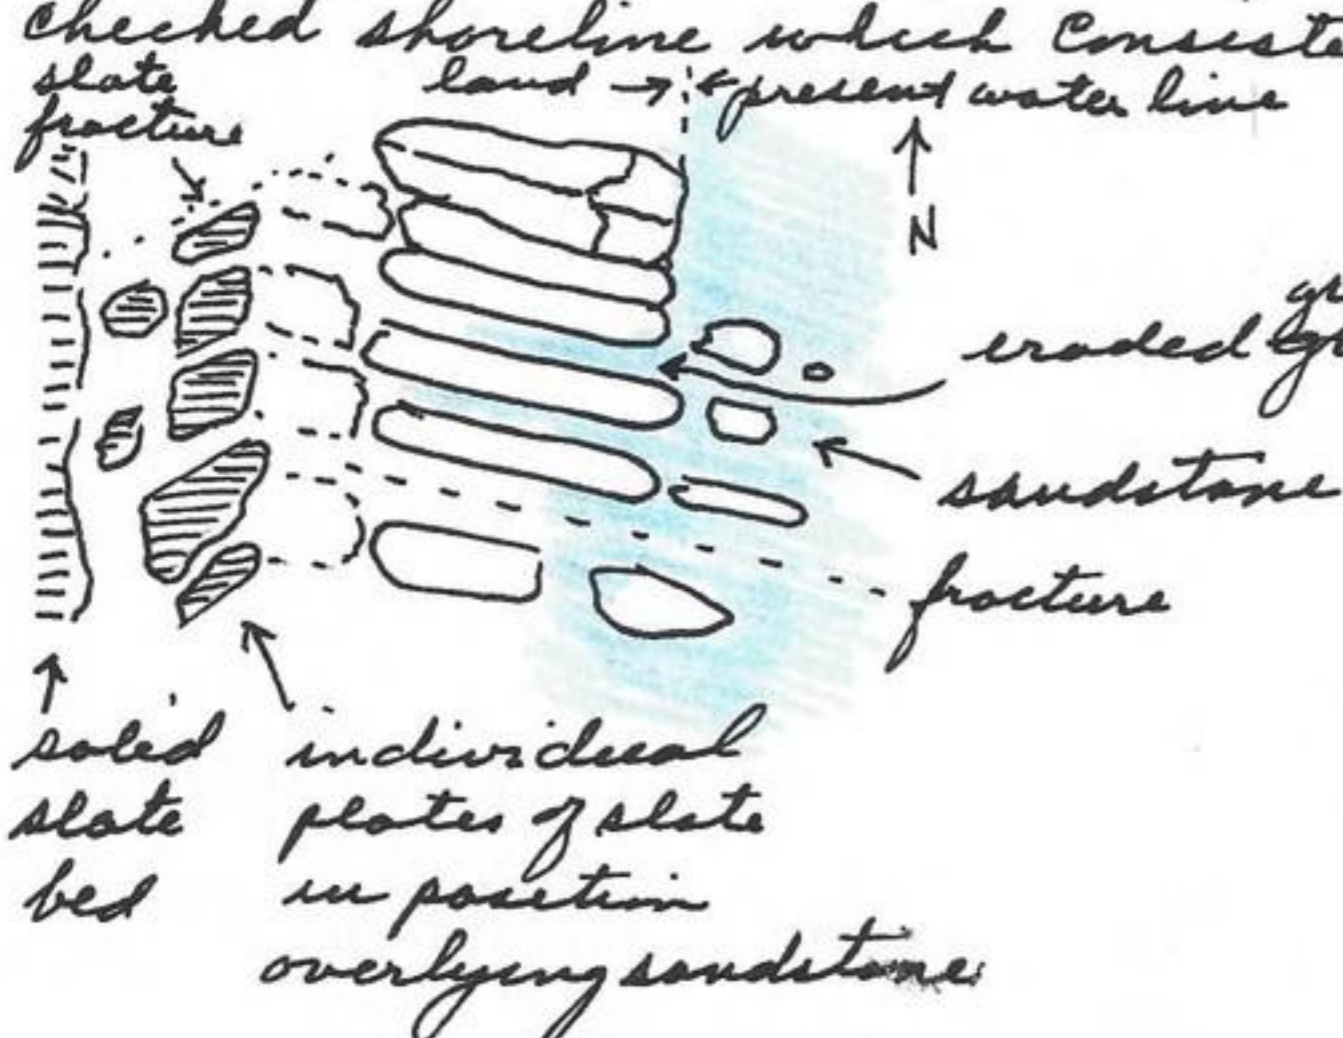 checked shoreline which consiste
slate
fracture
land → ← present water line
N
eroded
sandstone
fracture
solid
slate
bed
individual
plates of slate
in position
overlying sandstone